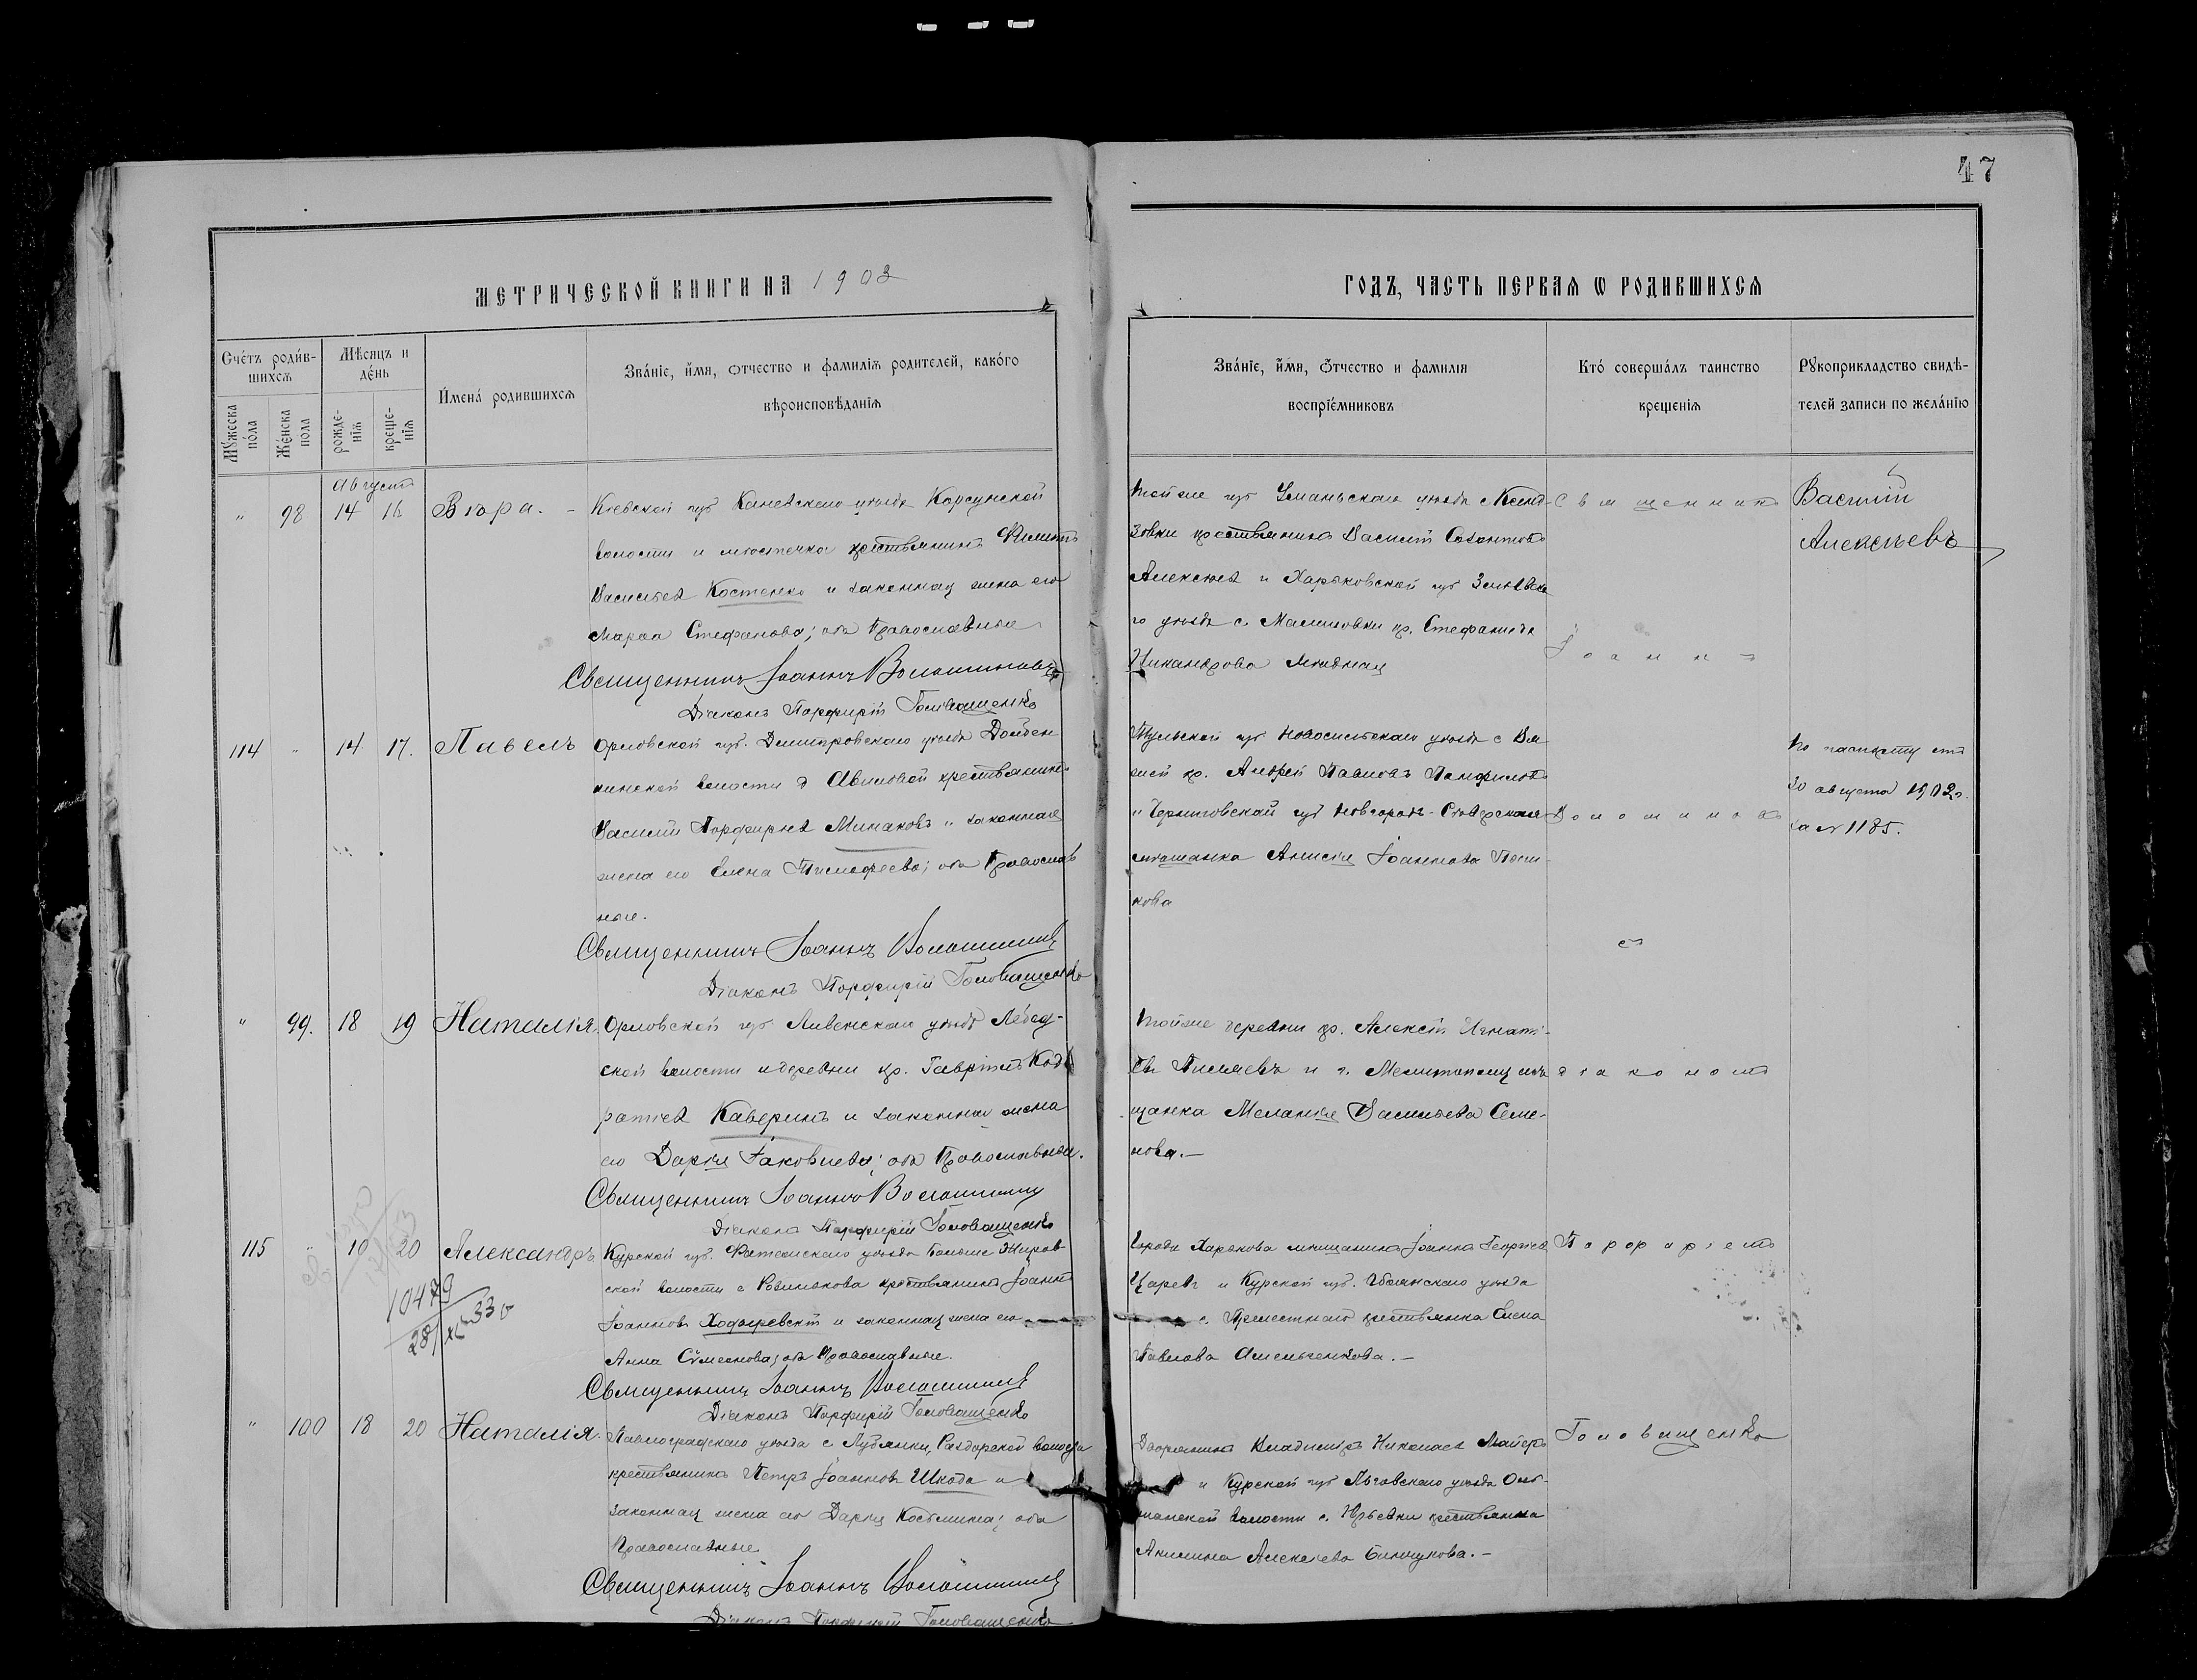 47
МЕТРИЧЕСКОЙ КНИГИ НА 1903
ГОДЪ, ЧАСТЬ ПЕРВАЯ Ѡ РОДИВШИХСЯ
Сче́тъ роди́в-
шихсѧ
Мѣ́сяцъ и
де́нь
И҆мена́ родившихсѧ
Зва́нїе, и҆́мя, ѻтчество и фамилїѧ родителей, како́го
вѣроисповѣ́данїѧ
Мꙋжеска по́ла
Же́нска пола
рожде-
нїѧ
креще-
нїѧ
Зва́нїе, и҆́мя, ѻ҆́тчество и фамилїѧ
воспрїе́мниковъ
Кто́ соверша́лъ таинство
крещенїѧ
Рꙋкоприкладство свидѣ-
телей записи по жела́нїю
Августъ
" 98 14 16 Вѣра. -
Кіевской губ Каневскаго уѣзда Корсунской
волости и мѣстечка крестьянинъ Филиппъ
Васильев Костенко и законная жена его
Марѳа Стефанова; оба Православные
Священникъ Іоаннъ Волошиновъ
Діаконъ Порфирій Головащенко
тойже губ Уманьскаго уѣзда с
крестьянинъ Василій
Алексѣев и Харьковской губ Зміевска
го уѣзда с. Малиновки кр. Стефанида
Никандрова
Священникъ
Іоаннъ
Василій
Алексѣевъ
114 " 14 17. Павелъ
Орловской губ. Дмитровскаго уѣзда
волости д Авиловой крестьянинъ
Василій Порфирьев Минаковъ и законная
жена его Елена Тимофеева; оба Православ
ные.
Священникъ Іоаннъ Волошиновъ
Діаконъ Порфирій Головащенко
Тульской губ Новосильскаго уѣзда с
кр. Андрей Павловъ Памфилов
и Черниговской губ Новгородъ-Сѣверская
мѣщанка Анисія Іоаннова
кова
Волошинов
ъ
По паспорту отъ
30 августа 1902 г.
за № 1185.
" 99. 18 19 Наталія.
Орловской губ Ливенскаго уѣзда
ской волости и деревни кр. Гавріилъ Код
ратіев Каверинъ и законная жена
его Дарія Іаковлева; оба Православные.
Священникъ Іоаннъ Волошиновъ
Діаконъ Порфирій Головащенко
тойже деревни кр. Алексій Игнаті-
ев и г. Мелитополя мѣ
щанка Меланія Васильева Семе-
нова.—
діакономъ
115 " 10 20 Александръ
10479
28/XI-33 г
Курской губ. Фатежскаго уѣзда Больше Жиров-
ской волости с крестьянинъ Іоаннъ
Іоаннов Ходыревскій и законная жена его
Анна Сѵмеонова; оба Православные.
Священникъ Іоаннъ Волошиновъ
Діаконъ Порфирій Головащенко
города Харькова мѣщанинъ Іоаннъ Георгіев
Царевъ и Курской губ. Обоянскаго уѣзда
с. Прелестнаго крестьянка Елена
Павлова Амельченкова.—
Порфиріемъ
" 100 18 20 Наталія.
Павлоградскаго уѣзда с Лубянки, Раздорской волости
крестьянинъ Петръ Іоаннов Шкода и
законная жена его Дарія Косьмина; оба
Православные
Священникъ Іоаннъ Волошиновъ
Діаконъ Порфирій Головащенко
Дворянинъ Владиміръ Николаев Майеръ
и Курской губ Льговскаго уѣзда
волости с. Юрьевки крестьянка
Акилина Алексѣева
Головащенко